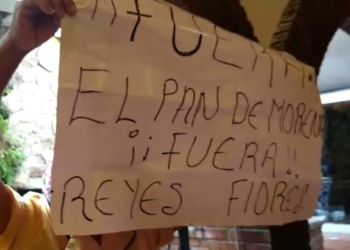 ¡¡FUERA!!
EL PAN DE MORENA
¡¡FUERA!!
REYES FLORES